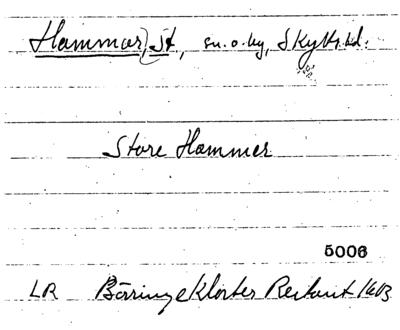 Hammar, St, sn. o. by, Skytts hd.
Store Hammer
5006
LR Börringe Kloster Restant 1603